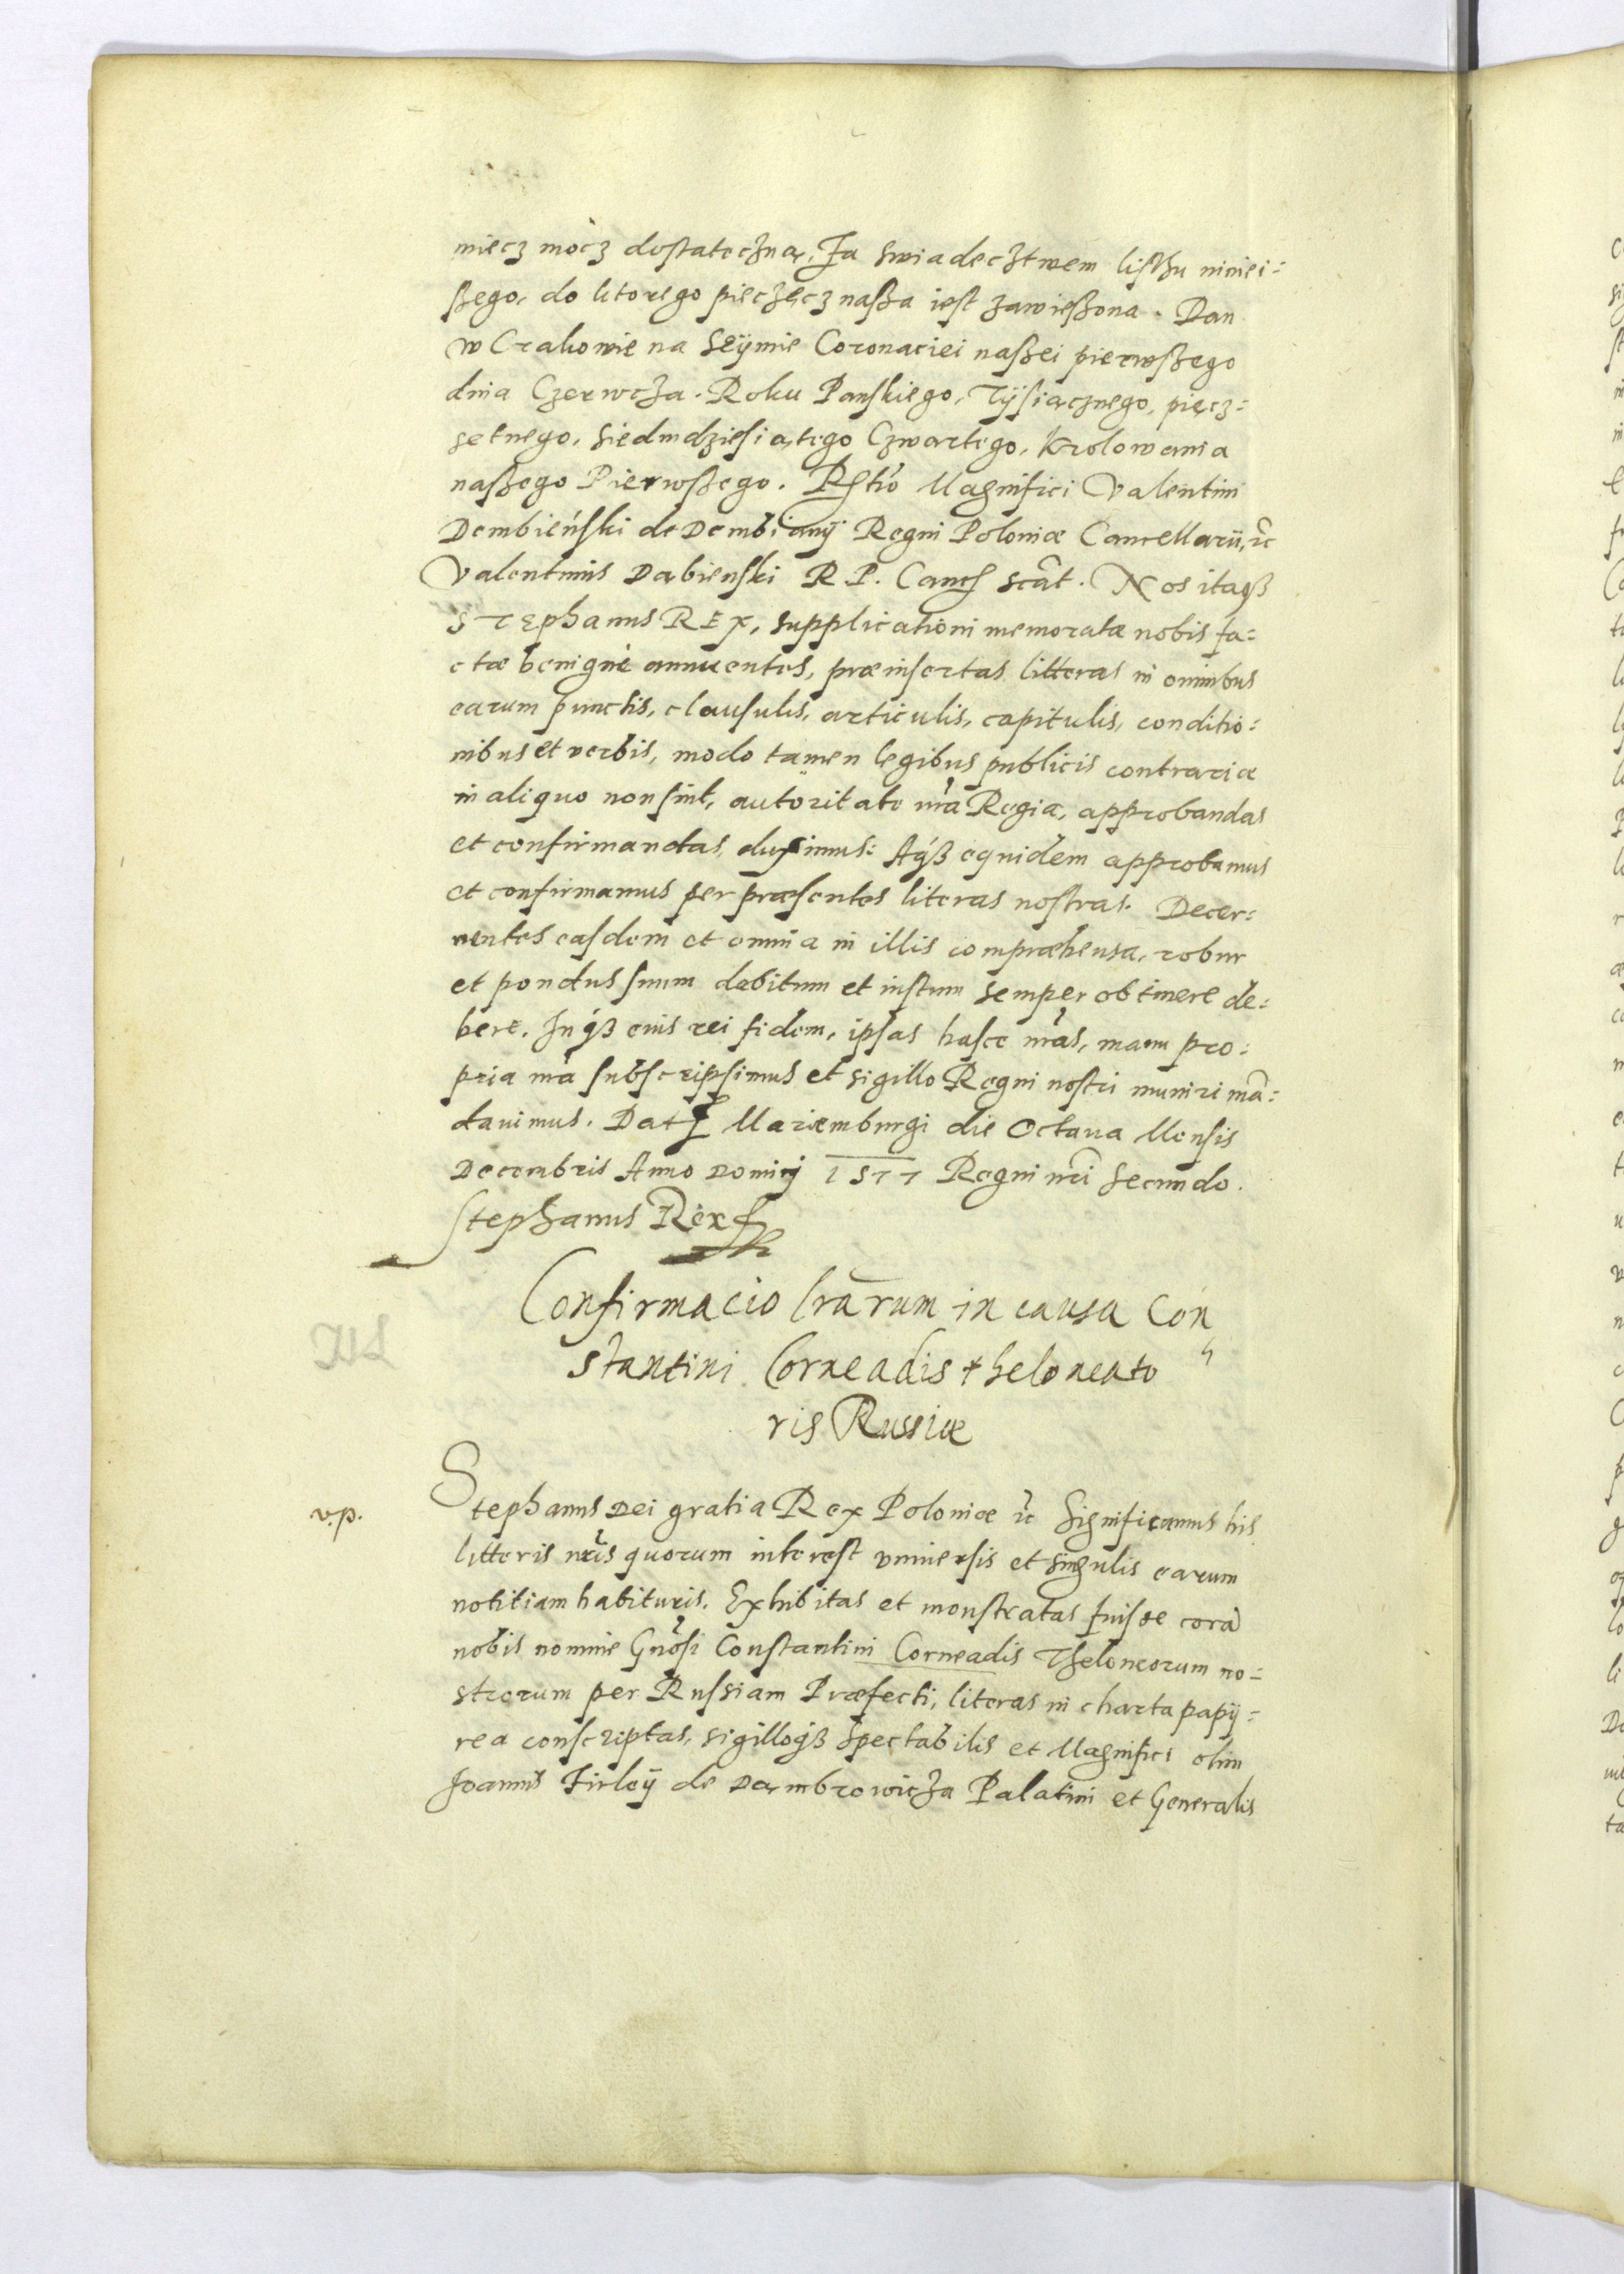 miecz mócz dostateczną, Za swiadecztwem listhu niniei=
szego, do ktorego pieczęcz nasza iest zawieszona. Dan
w Crakowie na Seÿmie Coronaciei naszei pierwszego
dnia Czerwcza. Roku Panskiego, Tÿsiącznego, pięcz=
setnego, Siedmdziesiątego Czwartego, Krolowania
naszego Pierwszego. Rlctio Magnifici Valentini
Dembieński de Dembianÿ Regni Poloniæ Cancellarii, etc
Valentinus Dabienski R P. Canc sczt. Nos itaqz
STephanus REx, supplicationi memoratæ nobis fa=
ctæ benignè annuentes, præinsertas litteras in omnibus
earum punctis, clausulis, articulis, capitulis, conditio=
nibus et verbis, modo tamen legibus publicis contrariæ
in aliquo non sint, autoritate nrã Regia, approbandas
et confirmandas, duximus: Atqz equidem approbamus
et confirmamus per præsentes literas nostras. Decer=
nentes easdem et omnia in illis compræhensa, robur
et pondus suum debitum et iustum semper obtinere de=
bere. In qz eius rei fidem, ipsas hasce nrãs, manu pro=
pria nrã subscripsimus et sigillo Regni nostri muniri mã=
dauimus. Dat Mariemburgi die Octaua Mensis
Decembris Anno Dominj 1577 Regni nri Secundo.
Stephanus Rex
Confirmacio lrarum in causa Con
stantini Corneadis theloneato
ris Russiæ
v.p.
Stephanus Dei gratia Rex Poloniæ etc Significamus his
litteris nris quorum interest vniuersis et singulis earum
notitiam habituris. Exhibitas et monstratas fuisse corã
nobis nomine Gnosi Constantini Corneadis Theloneorum no=
strorum per Russiam Præfecti, literas in charta papÿ=
rea conscriptas, sigilloqz Spectabilis et Magnifici olim
Joannis Firleÿ de Dambrowicza Palatini et Generalis